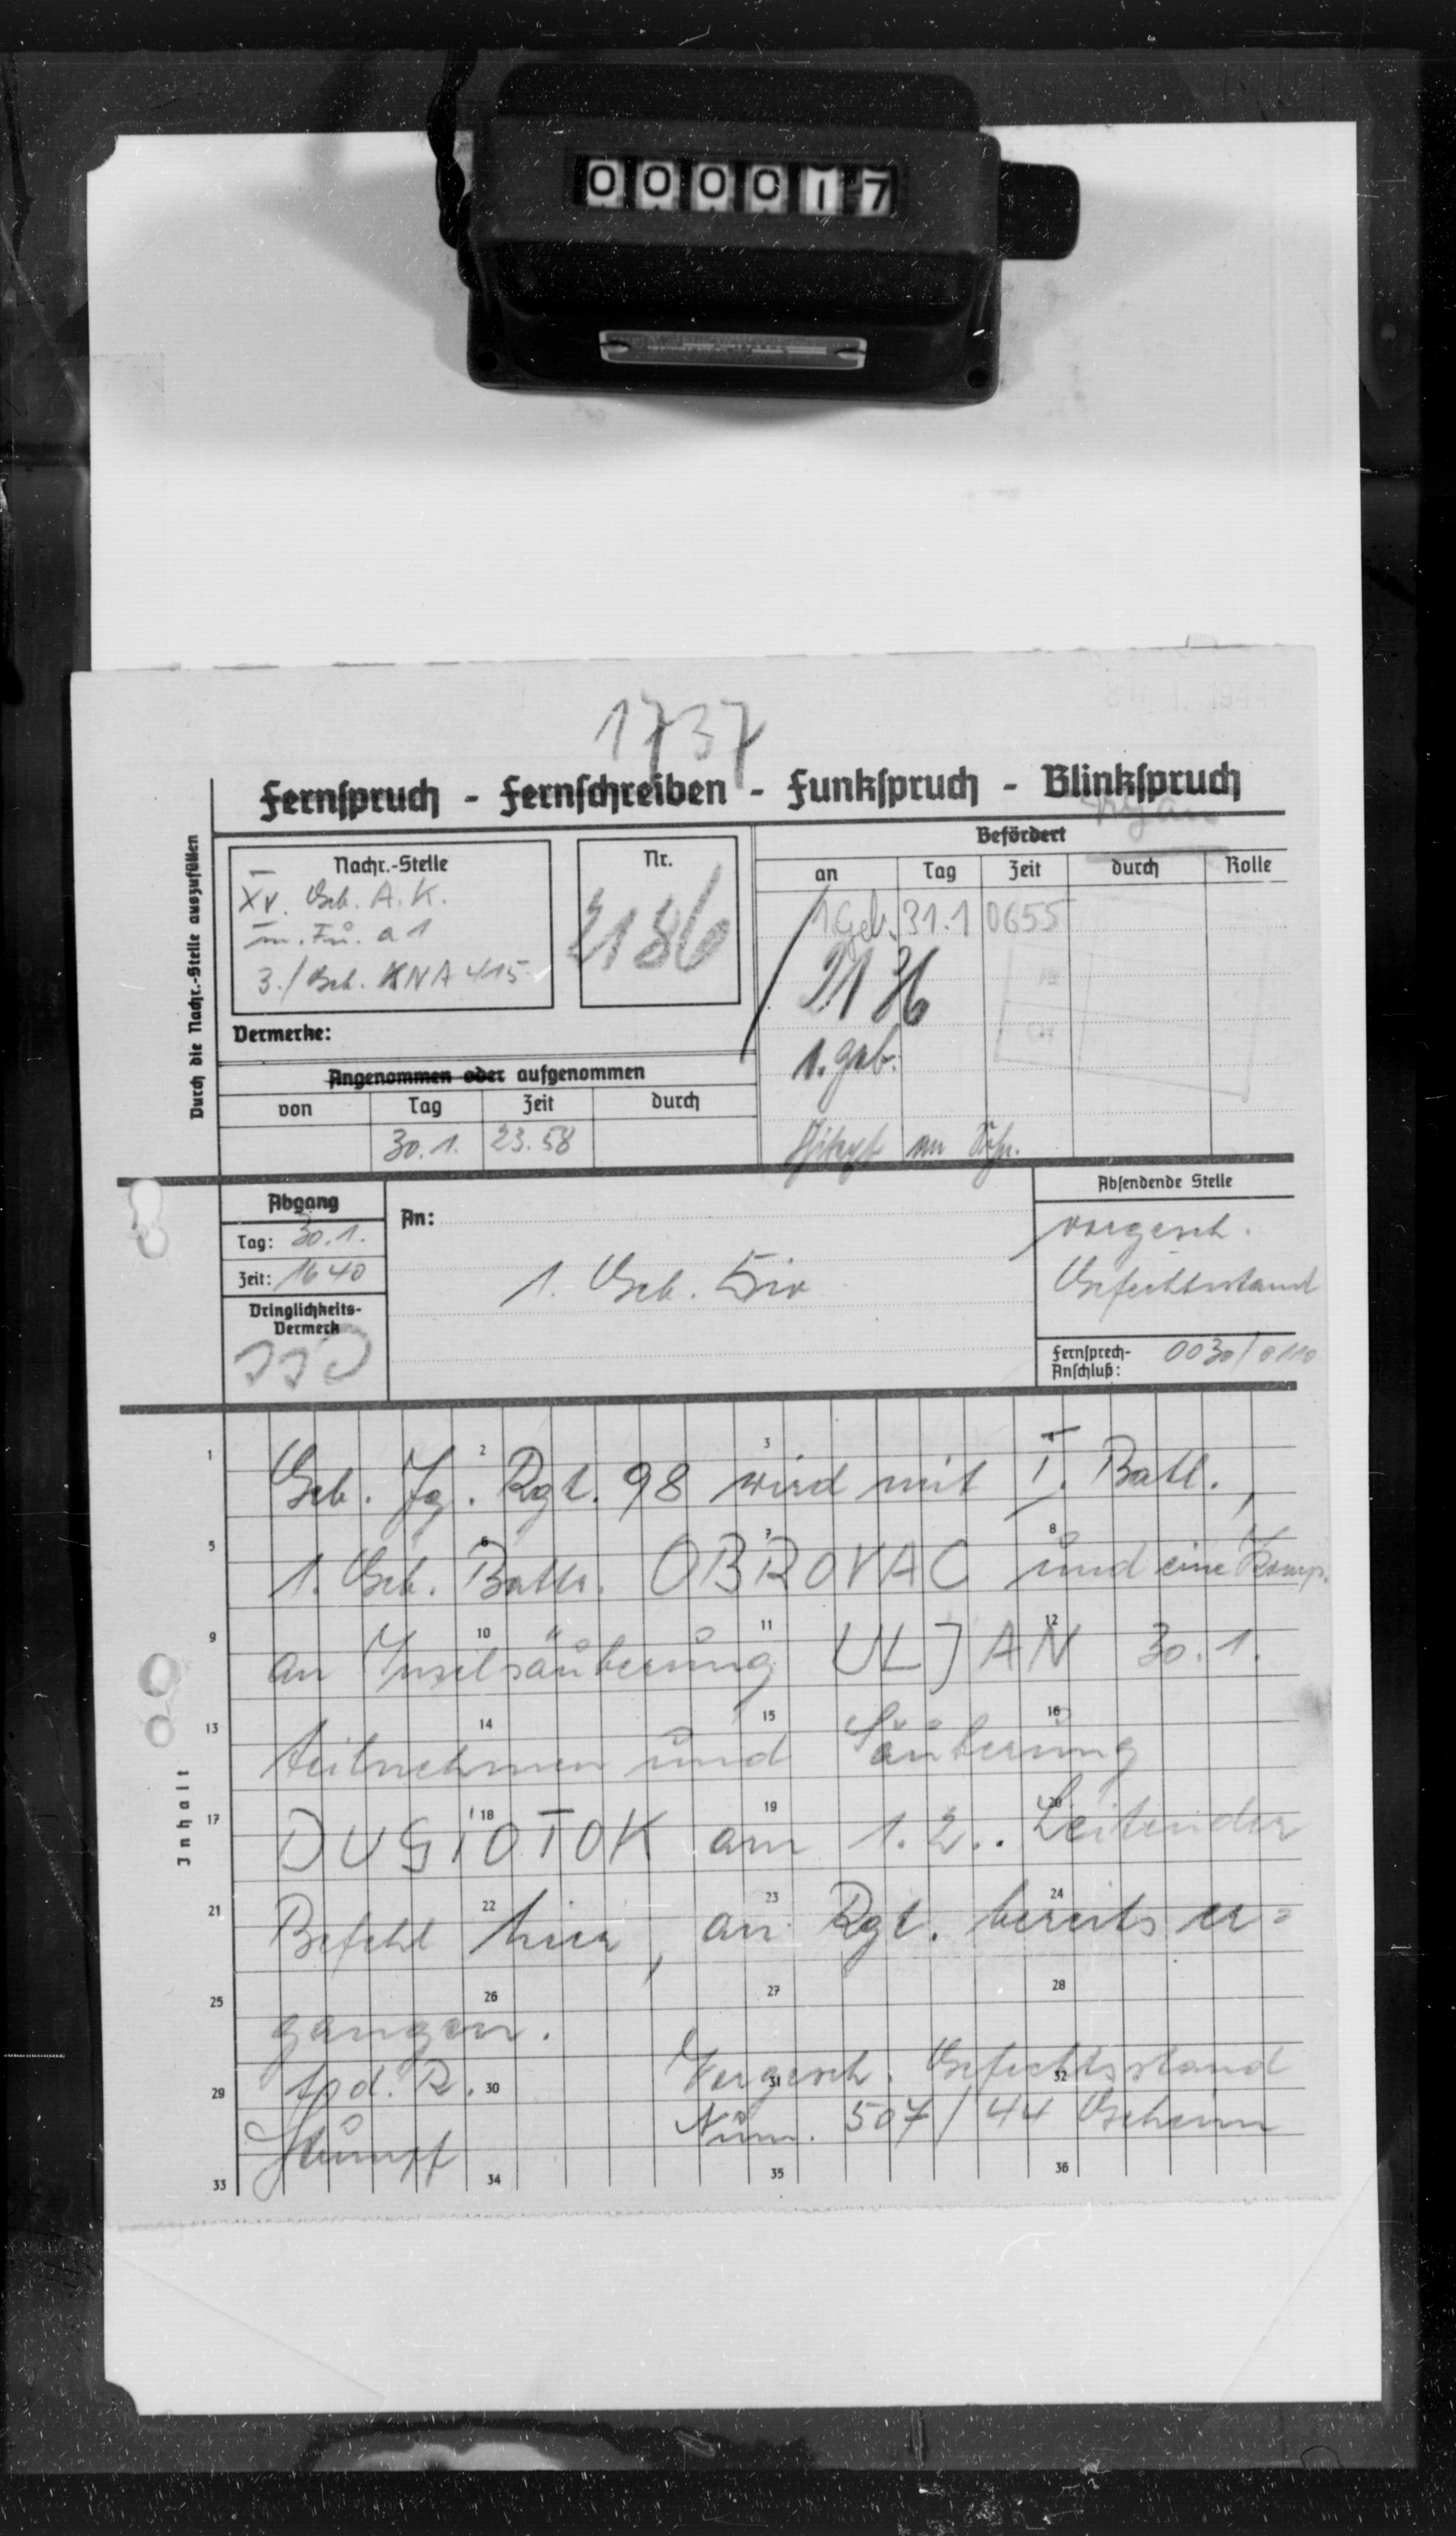 000017
1737
Fernspruch - Fernschreiben - Funkspruch - Blinkspruch
Durch die Nachr.-Stelle auszufüllen
Nachr.-Stelle
XV. Geb. A.K.
m. Fu. a 1
3./Geb. KNA 415
Nr.
2186
Befördert
an Tag Zeit durch Rolle
1 Geb. 31.1 0655
21 86
1. geb.
Vermerke:
Angenommen oder aufgenommen
von Tag Zeit durch
30.1. 23.58
Abgang
Tag: 30.1.
Zeit: 1640
Dringlichkeits-
Vermerk
An:
1. Geb. Div
Absendende Stelle
vorgesch.
Gefechtsstand
Fernsprech-
Anschluß: 0030/0110
Inhalt
1 2 3
Geb. Jg. Rgt. 98 wird mit I. Batl.,
5 6 7 8
1. Geb. Battr. OBROVAC und eine Komp.
9 10 11 12
an Inselsäuberung ULJAN 30.1.
13 14 15 16
teilnehmen und Säuberung
17 18 19 20
DUGIOTOK am 1.2.. Leitender
21 22 23 24
Befehl hier, an Rgt. bereits er=
25 26 27 28
gangen.
29 30 31 32
f.d.R. Vorgesch. Gefechtsstand
Stumpf Num. 507/44 Geheim
33 34 35 36